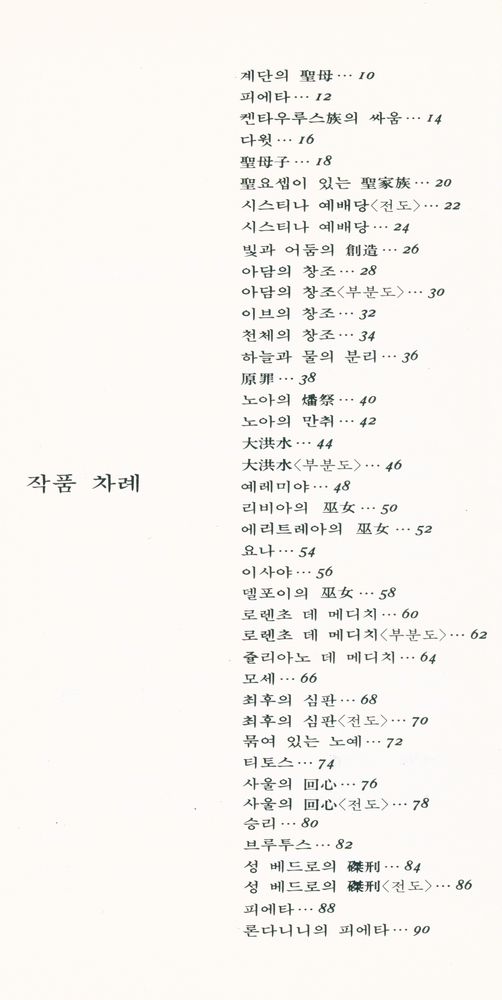 작품 차례
계단의 聖母 … 10
피에타 … 12
켄타우루스族의 싸움 … 14
다윗 … 16
聖母子 … 18
聖요셉이 있는 聖家族 … 20
시스티나 예배당〈전도〉 … 22
시스티나 예배당 … 24
빛과 어둠의 創造 … 26
아담의 창조 … 28
아담의 창조〈부분도〉 … 30
이브의 창조 … 32
천체의 창조 … 34
하늘과 물의 분리 … 36
原罪 … 38
노아의 燔祭 … 40
노아의 만취 … 42
大洪水 … 44
大洪水〈부분도〉 … 46
예레미야 … 48
리비아의 巫女 … 50
에리트레아의 巫女 … 52
요나 … 54
이사야 … 56
델포이의 巫女 … 58
로렌초 데 메디치 … 60
로렌초 데 메디치〈부분도〉 … 62
쥴리아노 데 메디치 … 64
모세 … 66
최후의 심판 … 68
최후의 심판〈전도〉 … 70
묶여 있는 노예 … 72
티토스 … 74
사울의 回心 … 76
사울의 回心〈전도〉 … 78
승리 … 80
브루투스 … 82
성 베드로의 磔刑 … 84
성 베드로의 磔刑〈전도〉 … 86
피에타 … 88
론다니니의 피에타 … 90